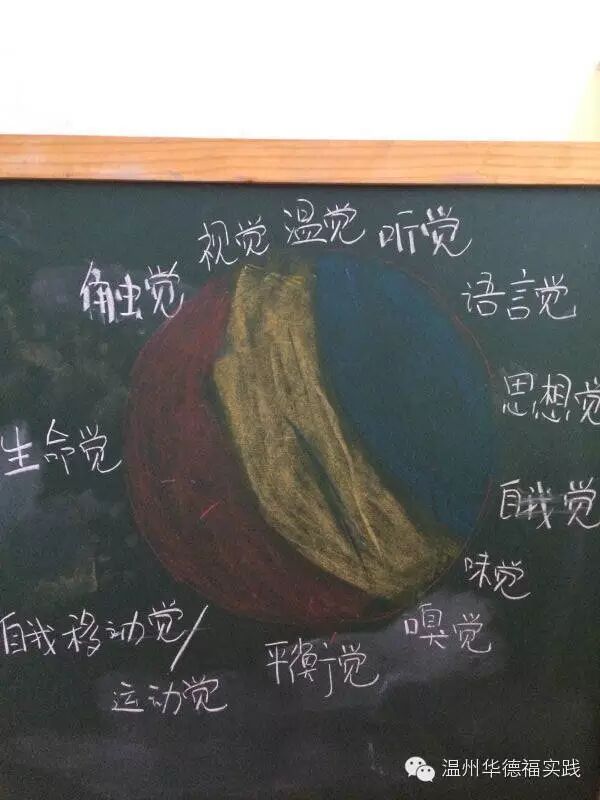 视觉 温觉 听觉
触觉
语言觉
思想觉
生命觉
自我觉
味觉
自我移动觉/
运动觉
平衡觉
嗅觉
温州华德福实践